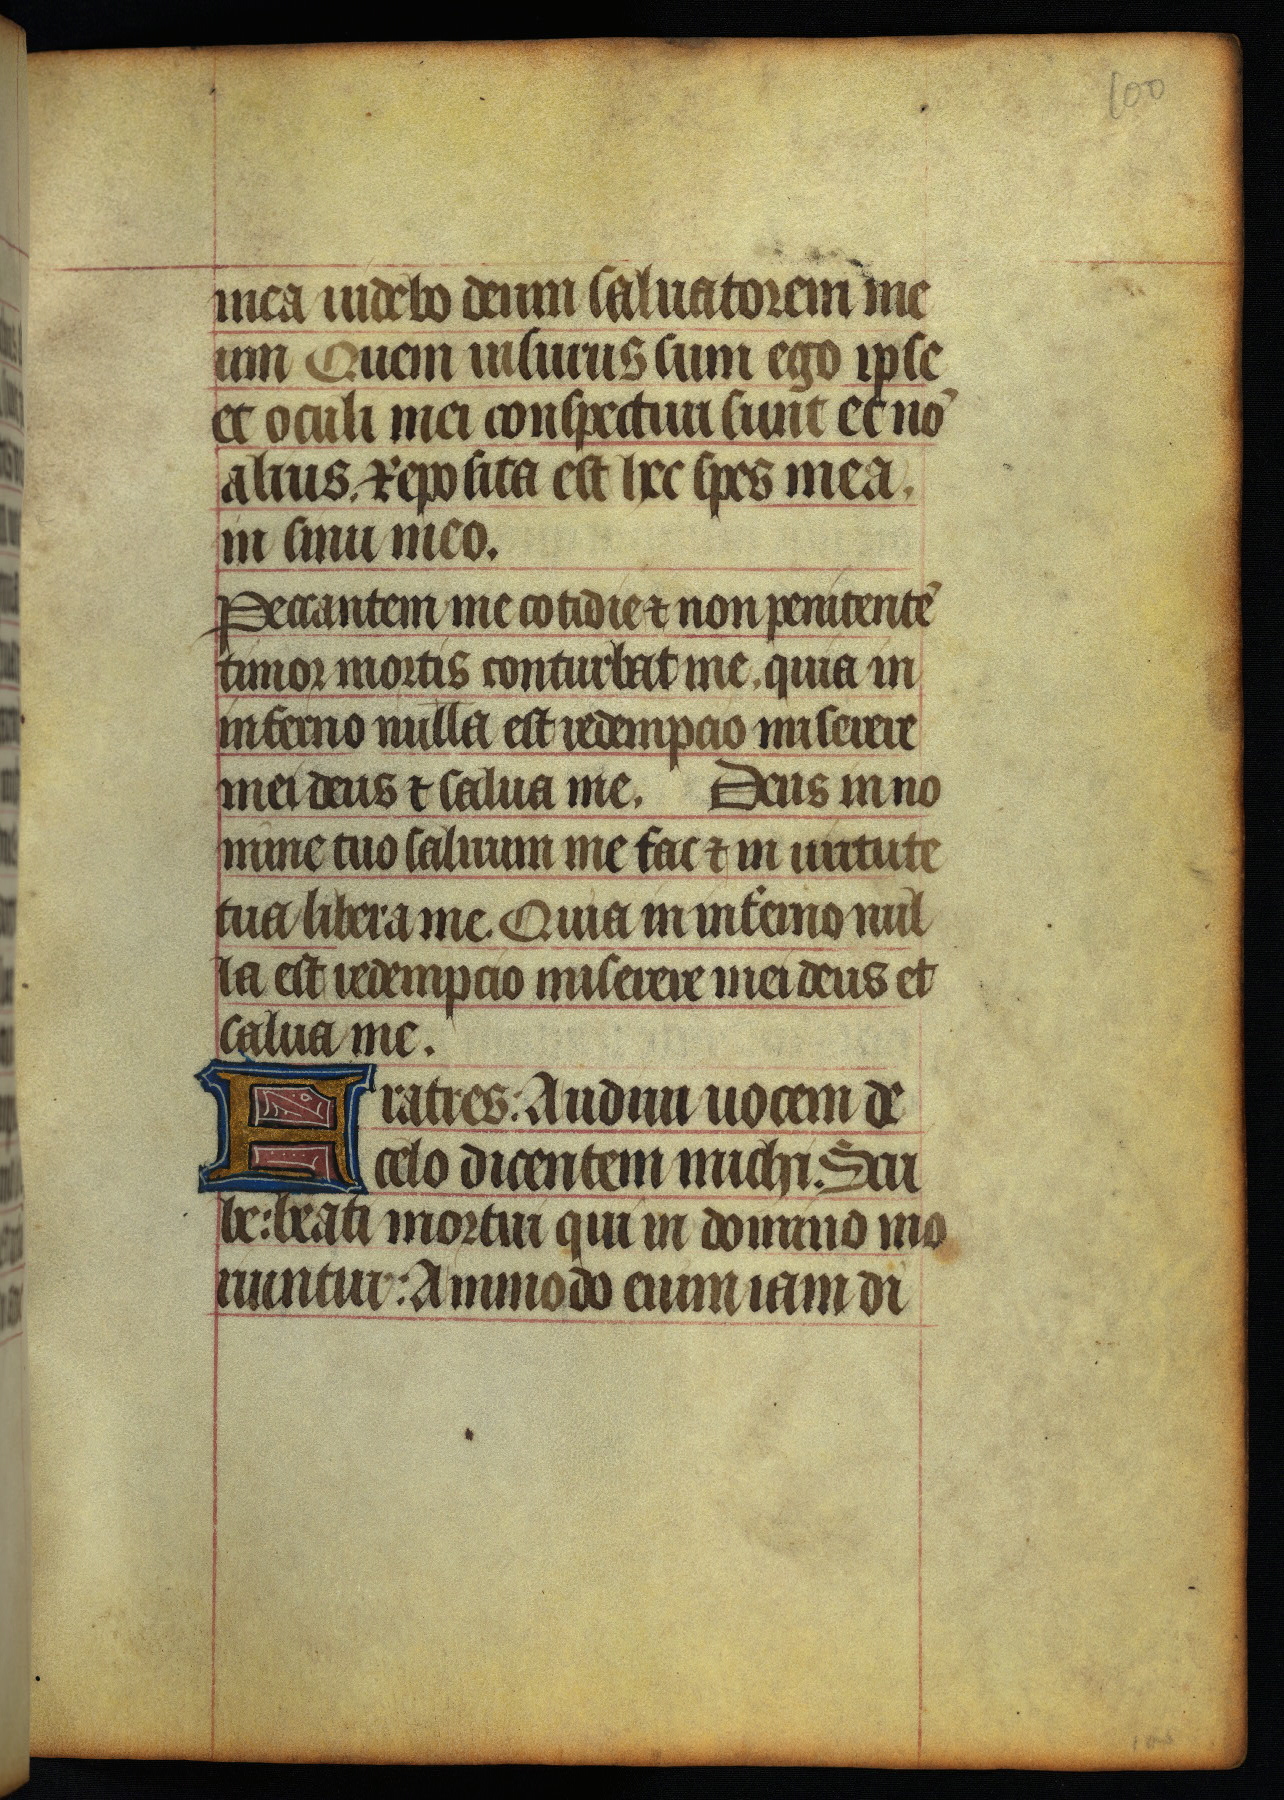 100
mea uidebo deum saluatorem me
um Quem uisurus sum ego ipse
et oculi mei conspecturi sunt et nō
alius. Reposita est hec spes mea.
in sinu meo.
Peccantem me cotidie ⁊ non penitentē
timor mortis conturbat me. quia in
inferno nulla est redempcio miserere
mei deus ⁊ salua me. Deus in no
mine tuo saluum me fac ⁊ in uirtute
tua libera me. Quia in inferno nul
la est redempcio miserere mei deus et
salua me.
Fratres: Audiui uocem de
celo dicentem michi. Scri
be: beati mortui qui in domino mo
riuntur: Ammodo enim iam di